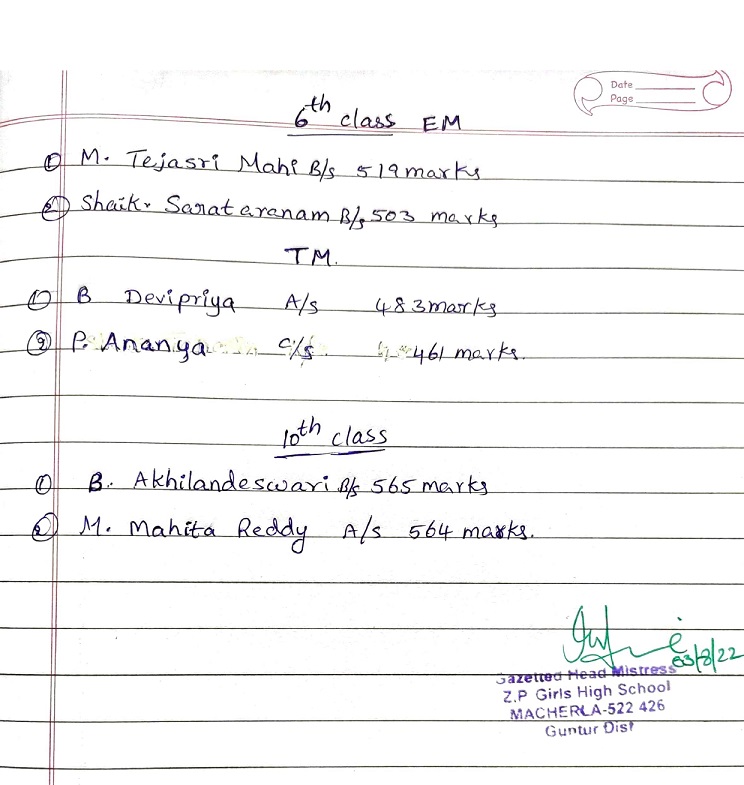 Date
Page
6th class EM
① M. Tejasri Mahi B/s 519 marks
② Shaik. Sanataranam B/s 503 marks
TM.
① B Devipriya A/s 483 marks
② P. Ananya C/s. 461 marks.
10th class
① B. Akhilandeswari B/s 565 marks
② M. Mahita Reddy A/s 564 marks.
03/8/22
Gazetted Head Mistress
Z.P Girls High School
MACHERLA-522 426
Guntur Dist